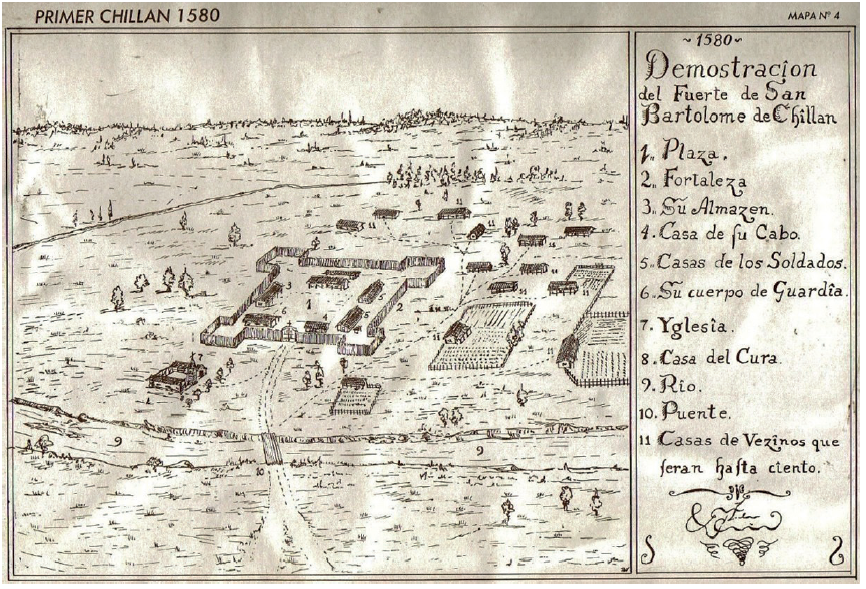 PRIMER CHILLAN 1580
MAPA Nº 4
~ 1580 ~
Demostracion
del Fuerte de San
Bartolome de Chillan
1. Plaza.
2. Fortaleza
3. Su Almazen.
4. Casa de su Cabo.
5. Casas de los Soldados.
6. Su cuerpo de Guardia.
7. Yglesia.
8. Casa del Cura.
9. Rio.
10. Puente.
11 Casas de Vezinos que
seran hasta ciento.
11
11
11
11
11
11
11
11
3
1
5
6
4
5
2
7
8
9
9
10